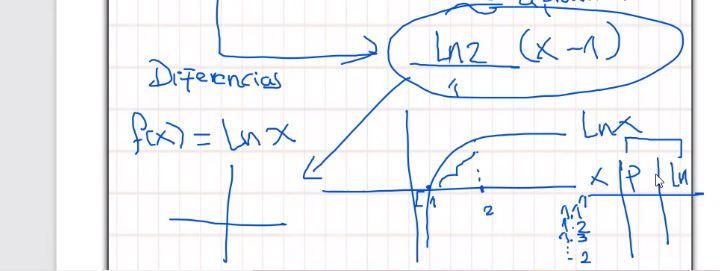 ln2 (x-1)
1
Diferencias
f(x) = Ln x
Ln x
x P Ln
1 2
1
1.1
1.2
1.3
2